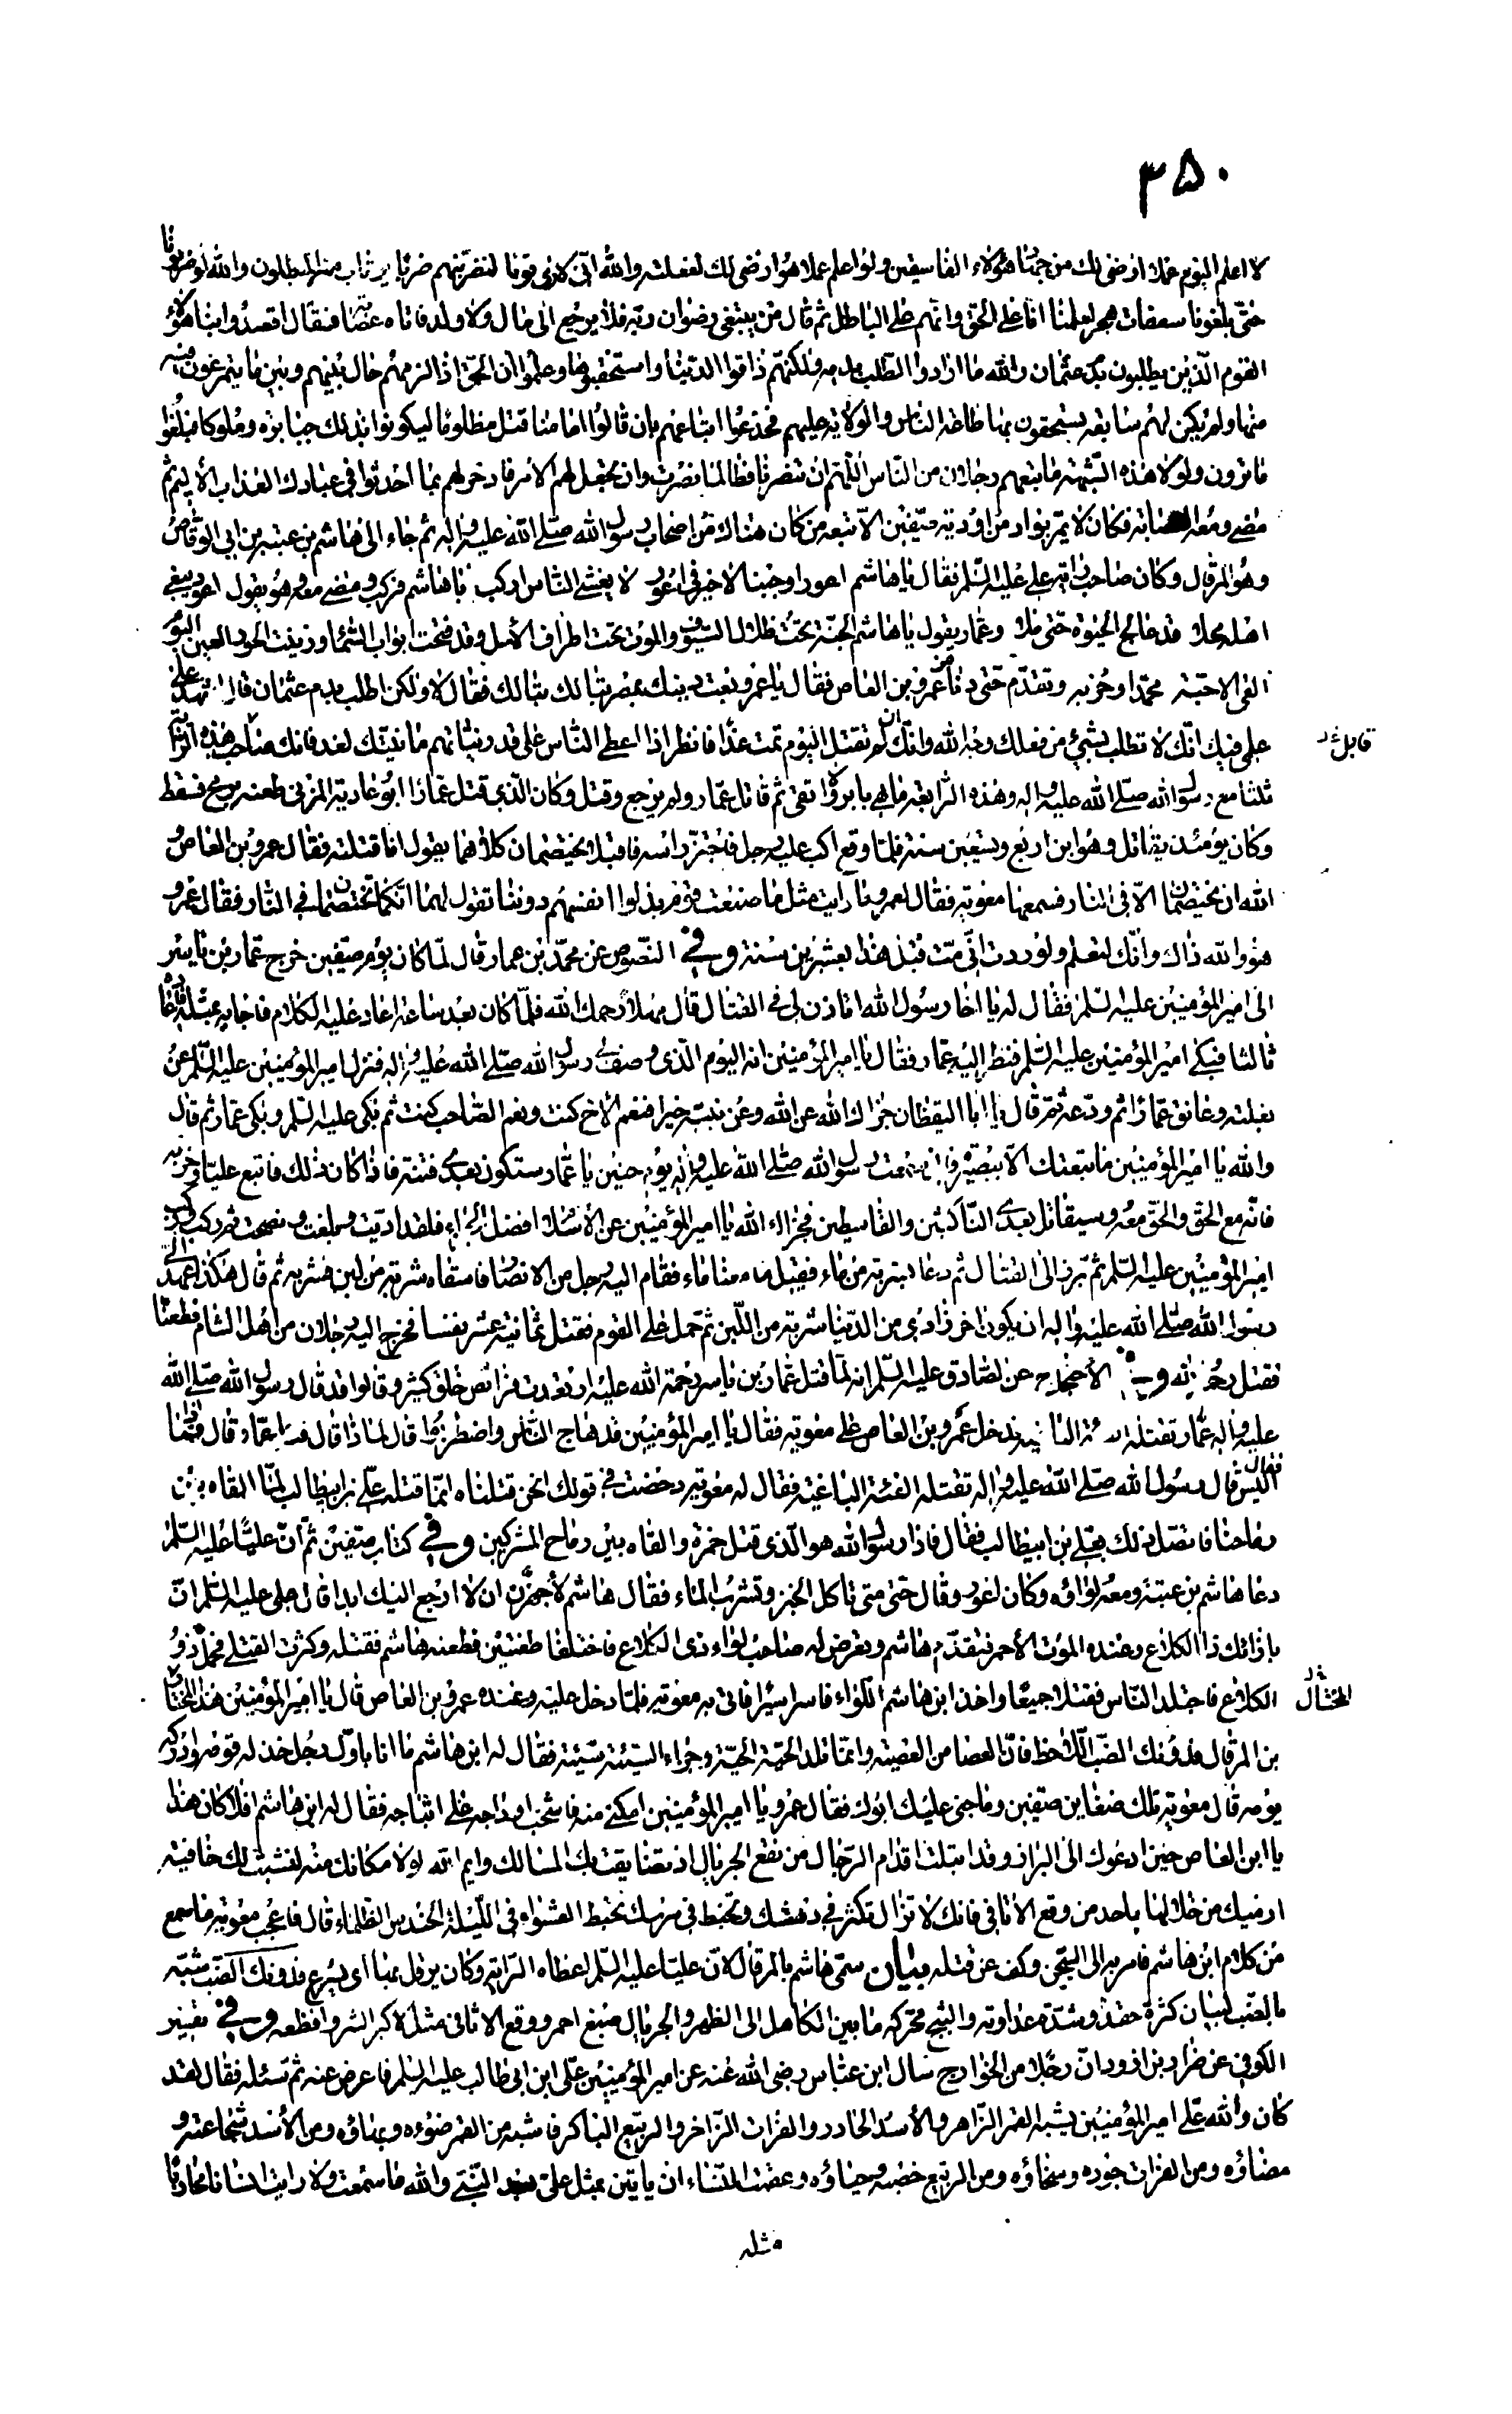 ٣۵٠
لا اعلم اليوم عملا ارضى لك من جهاد هؤلاء الفاسقين ولو اعلم عملا هو ارضى لك لفعلته والله انى لارى قوما لنضربنهم ضربا يرتاب منه المبطلون والله لو ضربونا
حتى بلغونا سعفات هجر لعلمنا انا على الحق وانهم على الباطل ثم قال من يبتغى رضوان ربه فلا يرجع الى مال ولا ولد فاتاه عصابة فقال اقصدوا بنا هؤلاء
القوم الذين يطلبون بدم عثمان والله ما ارادوا الطلب بدمه ولكنهم ذاقوا الدنيا واستحقبوها وعلموا ان الحق اذا لزمهم حال بينهم وبين ما يتمرغون فيه
منها ولم يكن لهم سابقه يستحقون بها طاعة الناس والولاية عليهم فخدعوا اتباعهم بان قالوا امامنا قتل مظلوما ليكونوا بذلك جبابرة وملوكا فبلغوا
ما ترون ولولا هذه الشبهة ما تبعهم رجلان من الناس اللهم ان تنصرنا فطالما نصرت وان تجعل لهم الامر فادخر لهم بما احدثوا فى عبادك العذاب الاليم ثم
مضى ومعه العصابة فكان لا يمر بواد من اودية صفين الا تبعه من كان هناك من اصحاب رسول الله صلى الله عليه واله ثم جاء الى هاشم بن عتبه بن ابى الوقاص
وهو المرقال وكان صاحب راية على عليه السلم فقال يا هاشم اعورا وجبنا لا خير فى اعور لا يغشى الناس اركب يا هاشم فركب ومضى معه وهو يقول اعور يبغى
اهله محلا قد عالج الحيوة حتى ملا وعمار يقول يا هاشم الجنة تحت ظلال السيوف والموت تحت اطراف الاسل وقد فتحت ابواب السماء وزينت الحور العين اليوم
القى الاحبة محمدا وحزبه وتقدم حتى دنا من عمرو بن العاص فقال يا عمرو بعت دينك بمصر تبا لك تبا لك فقال لا ولكن اطلب بدم عثمان قال اشهد على
علمى فيك انك لا تطلب بشئ من فعلك وجه الله وانك ان لم تقتل اليوم تمت غدا فانظر اذا اعطى الناس على قدر نياتهم ما نيتك لغد فانك صاحب هذه الراية
قابل ثد
ثلثا مع رسول الله صلى الله عليه واله وهذه الرابعة ما هى بابر ولا اتقى ثم قاتل عمار ولم يرجع وقتل وكان الذى قتل عمارا ابو غادية المزنى طعنه برمح فسقط
وكان يومئذ يقاتل وهو ابن اربع وتسعين سنة فلما وقع اكب عليه رجل فاجتز راسه فاقبلا يختصمان كلاهما يقول انا قتلته فقال عمرو بن العاص
الله ان يختصمان الا فى النار فسمعها معوية فقال لعمرو ما رايت مثل ما صنعت قوم بذلوا انفسهم دوننا تقول لهما انكما تختصمان فى النار فقال عمرو
هو والله ذاك وانك لتعلم ولوددت انى مت قبل هذا بعشرين سنة وفى النصوص عن محمد بن عمار قال لما كان يوم صفين خرج عمار بن ياسر
الى امير المؤمنين عليه السلم فقال له يا اخا رسول الله اتاذن لى فى القتال قال مهلا رحمك الله فلما كان بعد ساعة اعاد عليه الكلام فاجابه بمثله فاعاد
ثالثا فبكى امير المؤمنين عليه السلم فنظر اليه عمار فقال يا امير المؤمنين انه اليوم الذى وصفه رسول الله صلى الله عليه واله فنزل امير المؤمنين عليه السلم عن
بغلته وعانق عمارا ثم ودعه ثم قال يا ابا اليقظان جزاك الله عن الله وعن نبيه خيرا فنعم الاخ كنت ونعم الصاحب كنت ثم بكى عليه السلم وبكى عمار ثم قال
والله يا امير المؤمنين ما تبعتك الا ببصيرة فانى سمعت رسول الله صلى الله عليه واله يوم حنين يا عمار ستكون بعدى فتنة فاذا كان ذلك فاتبع عليا وحزبه
فانه مع الحق والحق معه وسيقاتل بعدى الناكثين والقاسطين فجزاك الله يا امير المؤمنين عن الاسلام افضل الجزاء فلقد اديت وبلغت ونصحت ثم ركب وركب
امير المؤمنين عليه السلم ثم برز الى القتال ثم دعا بشربة من ماء فقيل ما معنا ماء فقام اليه رجل من الانصار فاسقاه شربة من لبن فشربه ثم قال هكذا عهد الى
رسول الله صلى الله عليه واله ان يكون اخر زادى من الدنيا شربة من اللبن ثم حمل على القوم فقتل ثمانية عشر نفسا فخرج اليه رجلان من اهل الشام فطعناه
فقتل رحمه الله وفى الاحتجاج عن الصادق عليه السلم انه لما قتل عمار بن ياسر رحمة الله عليه ارتعدت فرائص خلق كثير وقالوا قد قال رسول الله صلى الله
عليه واله عمار تقتله الفئة الباغية فدخل عمرو بن العاص على معوية فقال يا امير المؤمنين قد هاج الناس واضطربوا قال لماذا قال قتل عمار قال فماذا
فقال اليس قال رسول الله صلى الله عليه واله تقتله الفئة الباغية فقال له معوية دحضت فى قولك انحن قتلناه انما قتله على بن ابيطالب لما القاه بين
رماحنا فاتصل ذلك بعلى بن ابيطالب فقال فاذا رسول الله هو الذى قتل حمزة والقاه بين رماح المشركين وفى كتاب صفين ثم ان عليا عليه السلم
دعا هاشم بن عتبة ومعه لواؤه وكان اعور وقال حتى متى تاكل الخبز وتشرب الماء فقال هاشم لاجهدن ان لا ارجع اليك ابدا قال على عليه السلم ان
بازائك ذا الكلاع وعنده الموت الاحمر فتقدم هاشم وتعرض له صاحب لواء ذى الكلاع فاختلفا طعنتين فطعنه هاشم فقتله وكثرت القتلى فحمل ذو
الكلاع فاجتلد الناس فقتلا جميعا واخذ ابن هاشم اللواء فاسر اسيرا فاتى به معوية فلما دخل عليه وعنده عمرو بن العاص قال يا امير المؤمنين هذا المختال
المختال ثد
بن المرقال فدونك الضب اللاحظ فان العصا من العصية وانما تلد الحية الحية وجزاء السيئة سيئة فقال له ابن هاشم ما انا باول رجل خذله قومه وادركه
يومه قال معوية تلك ضغاين صفين وما جنى عليك ابوك فقال عمرو يا امير المؤمنين امكنى منه فاشخب اوداجه على اثباجه فقال له ابن هاشم افلا كان هذا
يا ابن العاص حين ادعوك الى البراز وقد ابتلت اقدام الرجال من نقع الجريال اذ تضايقت بك المسالك وايم الله لولا مكانك منه لنشبت لك خافية
ارميك من خلالها باحد من وقع الاثافى فانك لا تزال تكثر فى دهشك وتخبط فى مرسك تخبط العشواء فى الليلة الحندس الظلماء قال فاعجب معوية ما سمع
من كلام ابن هاشم فامر به الى السجن وكف عن قتله بيان سمى هاشم بالمرقال لان عليا عليه السلم اعطاه الراية وكان يرقل بها اى يسرع فدونك الضب شبه
بالضب لبيان كثرة حقده وشدة عداوته والثبج محركة ما بين الكاهل الى الظهر والجريال صبغ احمر ووقع الاثافى مثل لاكبر الشر وافظعه وفى تفسير
الكوفى عن ضرار بن ازور ان رجلا من الخوارج سال ابن عباس رضى الله عنه عن امير المؤمنين على ابن ابى طالب عليه السلم فاعرض عنه ثم سئله فقال لقد
كان والله على امير المؤمنين يشبه القمر الزاهر والاسد الخادر والفرات الزاخر والربيع الباكر فاشبه من القمر ضوءه وبهاؤه ومن الاسد شجاعته و
مضاؤه ومن الفرات جوده وسخاؤه ومن الربيع خصبه وحياؤه وعقمت النساء ان ياتين بمثل على بعد النبى والله ما سمعت ولا رايت انسانا محاربا
مثله